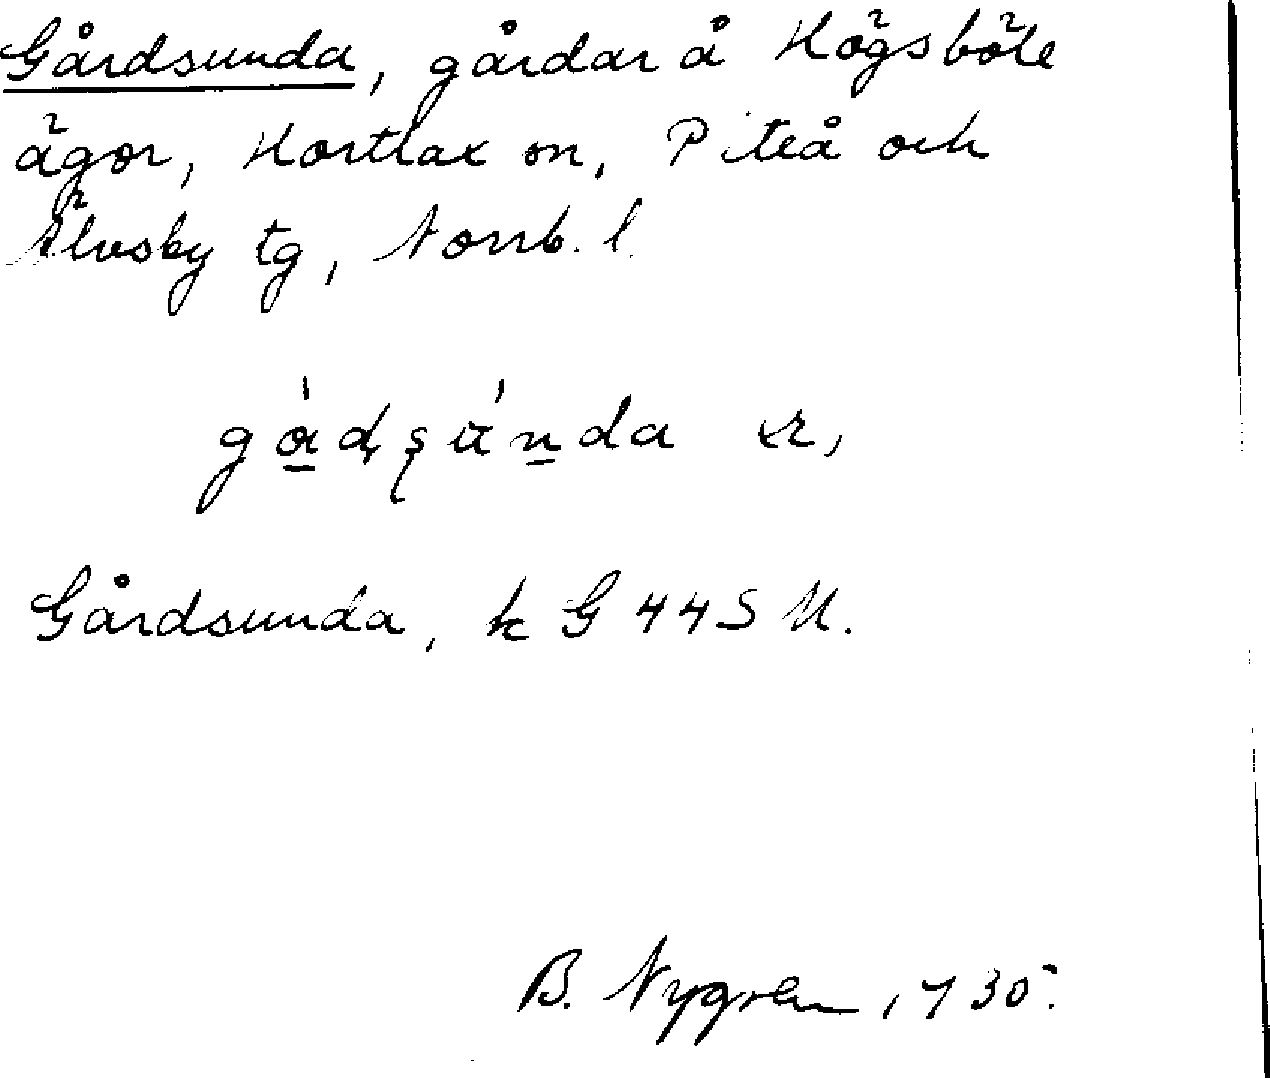 Gårdsunda, gårdar å Högsböle
ägor, Hortlax sn, Piteå och
Älvsby tg, Norrb. l.
Gårdsunda, k G 445 U.
B. Nygren, 1930.